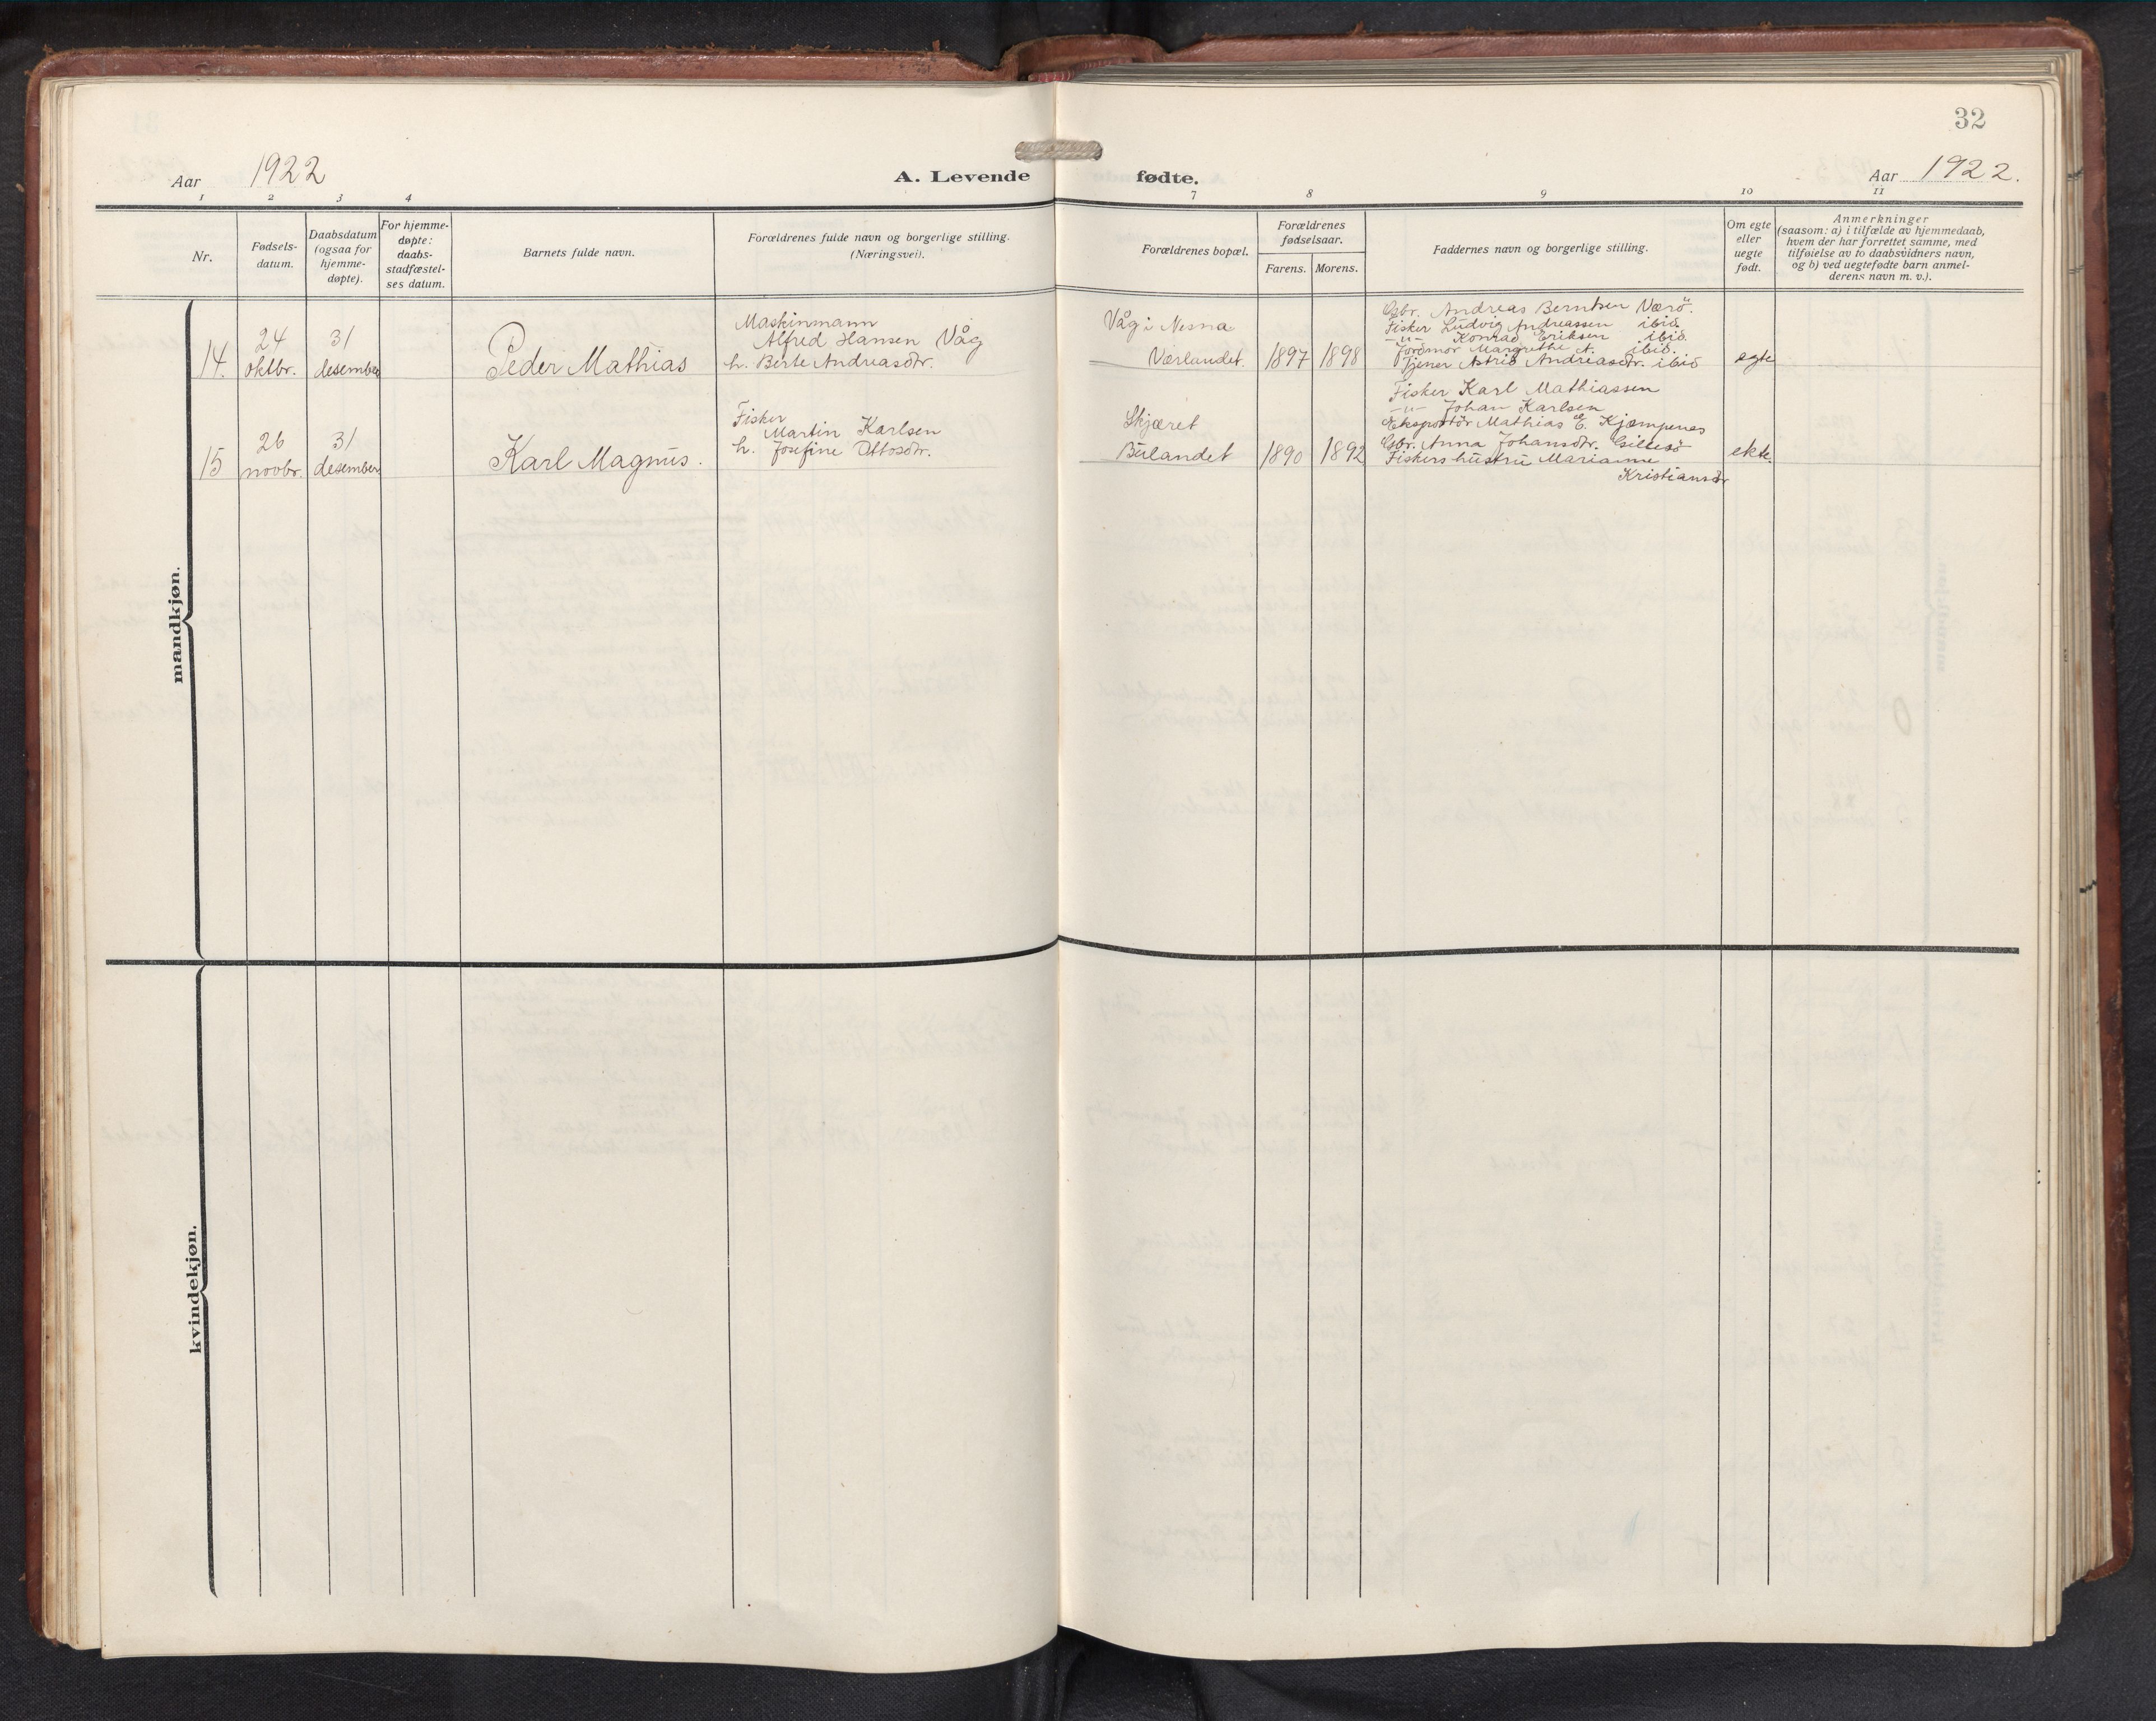 32
Aar 1922
A. Levende fødte.
Aar 1922.
1 2 3 4 7 8 9 10 11
Nr.
Fødsels-
datum.
Daabsdatum
(ogsaa for
hjemme-
døpte).
For hjemme-
døpte:
daabs-
stadfæstel-
ses datum.
Barnets fulde navn.
Forældrenes fulde navn og borgerlige stilling.
(Næringsvei).
Forældrenes bopæl.
Forældrenes
fødselsaar.
Farens. Morens.
Faddernes navn og borgerlige stilling.
Om egte
eller
uegte
født.
Anmerkninger
(saasom: a) i tilfælde av hjemmedaab,
hvem der har forrettet samme, med
tilføielse av to daabsvidners navn,
og b) ved uegtefødte barn anmel-
derens navn m. v.).
mandkjøn.
14.
24
oktbr.
31
desember
Peder Mathias
Maskinmann
Alfred Hansen Våg
h. Berte Andreasdtr.
Våg i Nesna
Værlandet.
1897
1898
Gbr. Andreas Berntsen Værö.
Fisker Ludvig Andreassen ibid.
-"- Konrad Eriksen ibid.
Jordmor Margrethe A. ibid.
Tjener Astrid Andreasdtr. ibid
egte
15
26
novbr.
31
desember
Karl Magnus.
Fisker
Martin Karlsen
h. Josefine Ottosdtr.
Skjæret
Bulandet
1890
1892
Fisker Karl Mathiassen
-"- Johan Karlsen
Eksportör Mathias E. Kjempenes
Gbr. Anna Johansdtr. Gillesö
Fiskers hustru Marianne
Kristiansdtr
ekte.
kvindekjøn.